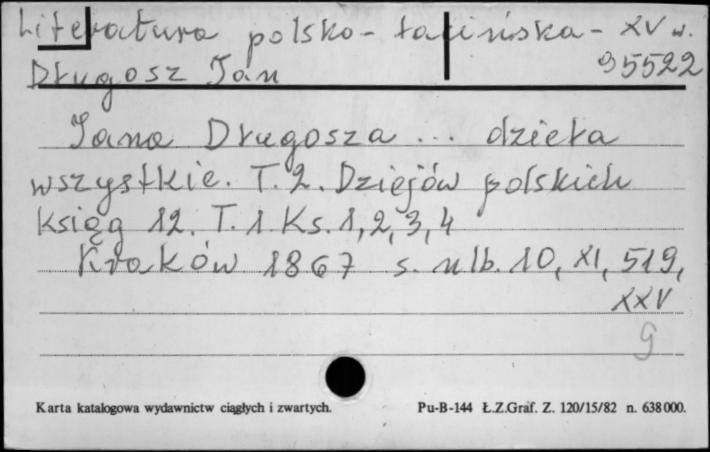 Literatura polsko-łacińska - XV w.
Długosz Jan 95522
Jana Długosza ... dzieła
wszystkie. T. 2. Dziejów polskich
ksiąg 12. T. 1. Ks. 1, 2, 3, 4
Kraków 1867 s. nlb. 10, XI, 519,
XXV
g
Karta katalogowa wydawnictw ciągłych i zwartych. Pu-B-144 Ł.Z.Graf. Z. 120/15/82 n. 638 000.